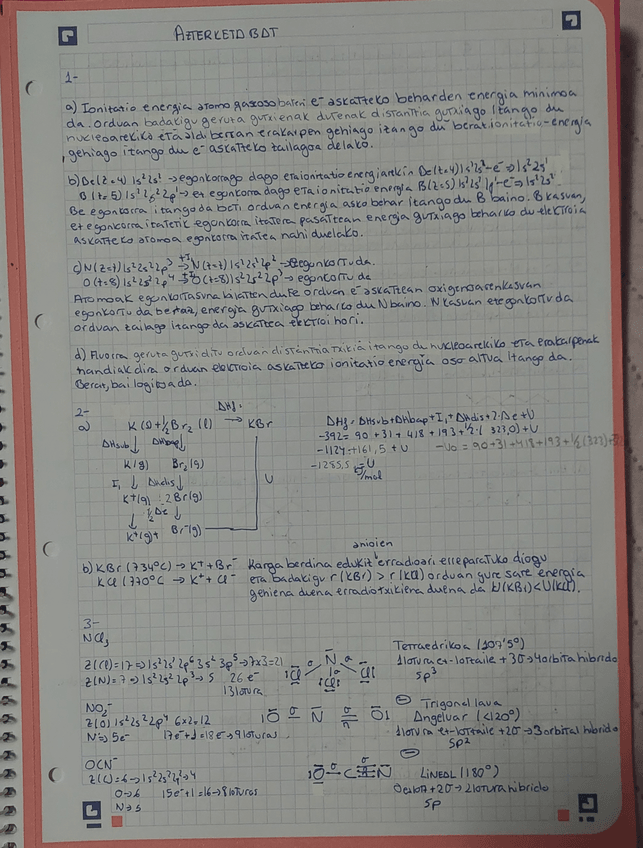 AZTERKETA BAT
1-
a) Ionitatio energia atomo gaseoso bateri e⁻ askatteko beharden energia minimoa
da. orduan badakigu geruta gutxienak dutenak distantzia gutxiago itango du
nucleoarekiko eta aldi berean erakarpen gehiago itango du beraz ionitatio-energia
gehiago itango du e⁻ askatteko tailagoa delako.
b) Be(z=4) 1s²2s² → egonkorrago dago eta ionitatio energiarekin Be(z=4) 1s²2s² -e⁻ → 1s²2s¹
B (z=5) 1s²2s²2p¹ → ez egonkorra dago eta ionitatio energia B(z=5) 1s²2s²2p¹ -e⁻ → 1s²2s²
Be egonkorra itango da beti orduan energia asko behar itango du B baino. B kasuan,
ez egonkorra itatetik egonkorra itatera pasattean energia gutxiago beharko du elektroia
askatteko atomoa egonkorra itatea nahi duelako.
c) N(z=7) 1s²2s²2p³ → N(z=7) 1s²2s²2p² → ez egonkortu da.
O(z=8) 1s²2s²2p⁴ → O(z=8) 1s²2s²2p³ → egonkortu da
Atomoak egonkortasuna bilatten dute orduan e⁻ askattean oxigenoaren kasuan
egonkortu da beraz, energia gutxiago beharko du N baino. N kasuan ez egonkortu da
orduan tailago itango da askattea elektroi hori.
d) Fluorra geruta gutxi ditu orduan distantzia txikia itango du nucleoarekiko eta erakarpenak
handiak dira orduan elektroia askatteko ionitatio energia oso altua itango da.
Beraz, bai logikoa da.
2-
a) ΔHf:
K(s) + ½ Br₂ (l) → KBr
ΔHsub↓ ΔHbap↓
K(g) Br₂(g)
I₁ ↓ ΔHdis↓
K⁺(g) 2Br(g)
½ Δe ↓
K⁺(g) + Br⁻(g)
U
ΔHf = ΔHsub + ΔHbap + I₁ + ΔHdis + 2·Δe + U
-392 = 90 + 31 + 418 + 193 + ½·( 323,0) + U
-1124 = +161,5 + U
-1285,5 kJ/mol = U
-U₀ = 90+31+418+193+½(323)+3
b) KBr (734°C) → K⁺ + Br⁻ Karga berdina edukiz anioien erradioari erreparatuko diogu
KCl (770°C → K⁺ + Cl⁻ eta badakigu r(KBr) > r(KCl) orduan gure sare energia
gehiena duena erradio txikiena duena da U(KBr) < U(KCl).
3-
NCl₃
Z(Cl)=17 ⇒ 1s²2s²2p⁶3s²3p⁵ → 7x3=21
Z(N)=7 → 1s²2s²2p³ → 5 26 e⁻
13 lotura
Tetraedrikoa (107'5°)
1 lotura ez-lotzaile + 3σ → 4 orbita hibrido
sp³
NO₂⁻
Z(O) 1s²2s²2p⁴ 6x2=12
N ⇒ 5e⁻ 17e⁻+1=18e⁻ → 9 loturas
Trigonal laua
Angeluar (<120°)
1 lotura ez-lotzaile + 2σ → 3 orbital hibrido
sp²
OCN⁻
Z(C)=6 → 1s²2s²2p² → 4
O → 6 15e⁻+1=16 → 8 loturas
N ⇒ 5
Lineal (180°)
0 ez lotz + 2σ → 2 lotura hibrido
sp